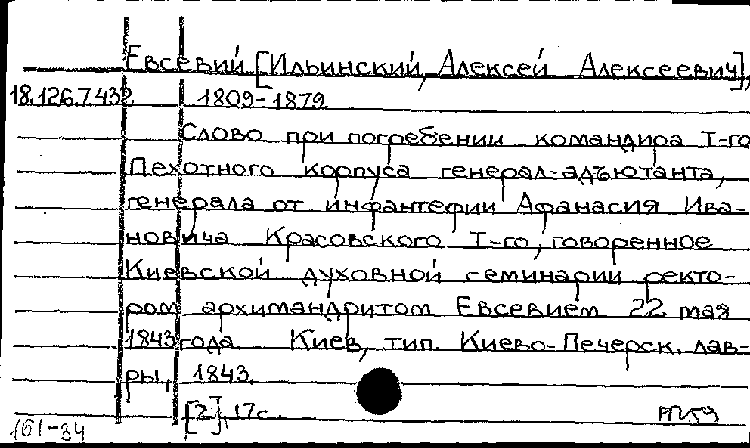 Евсевий [Ильинский, Алексей Алексеевич],
18.126.7.432 1809-1879
Слово при погребении командира I-го
Пехотного корпуса генерал-адъютанта,
генерала от инфантерии Афанасия Ива-
новича Красовского I-го, говоренное
Киевской духовной семинарии ректо-
ром архимандритом Евсевием 22 мая
1843 года. Киев, тип. Киево-Печерск. лав-
ры, 1843.
[2], 17 с.
161-84